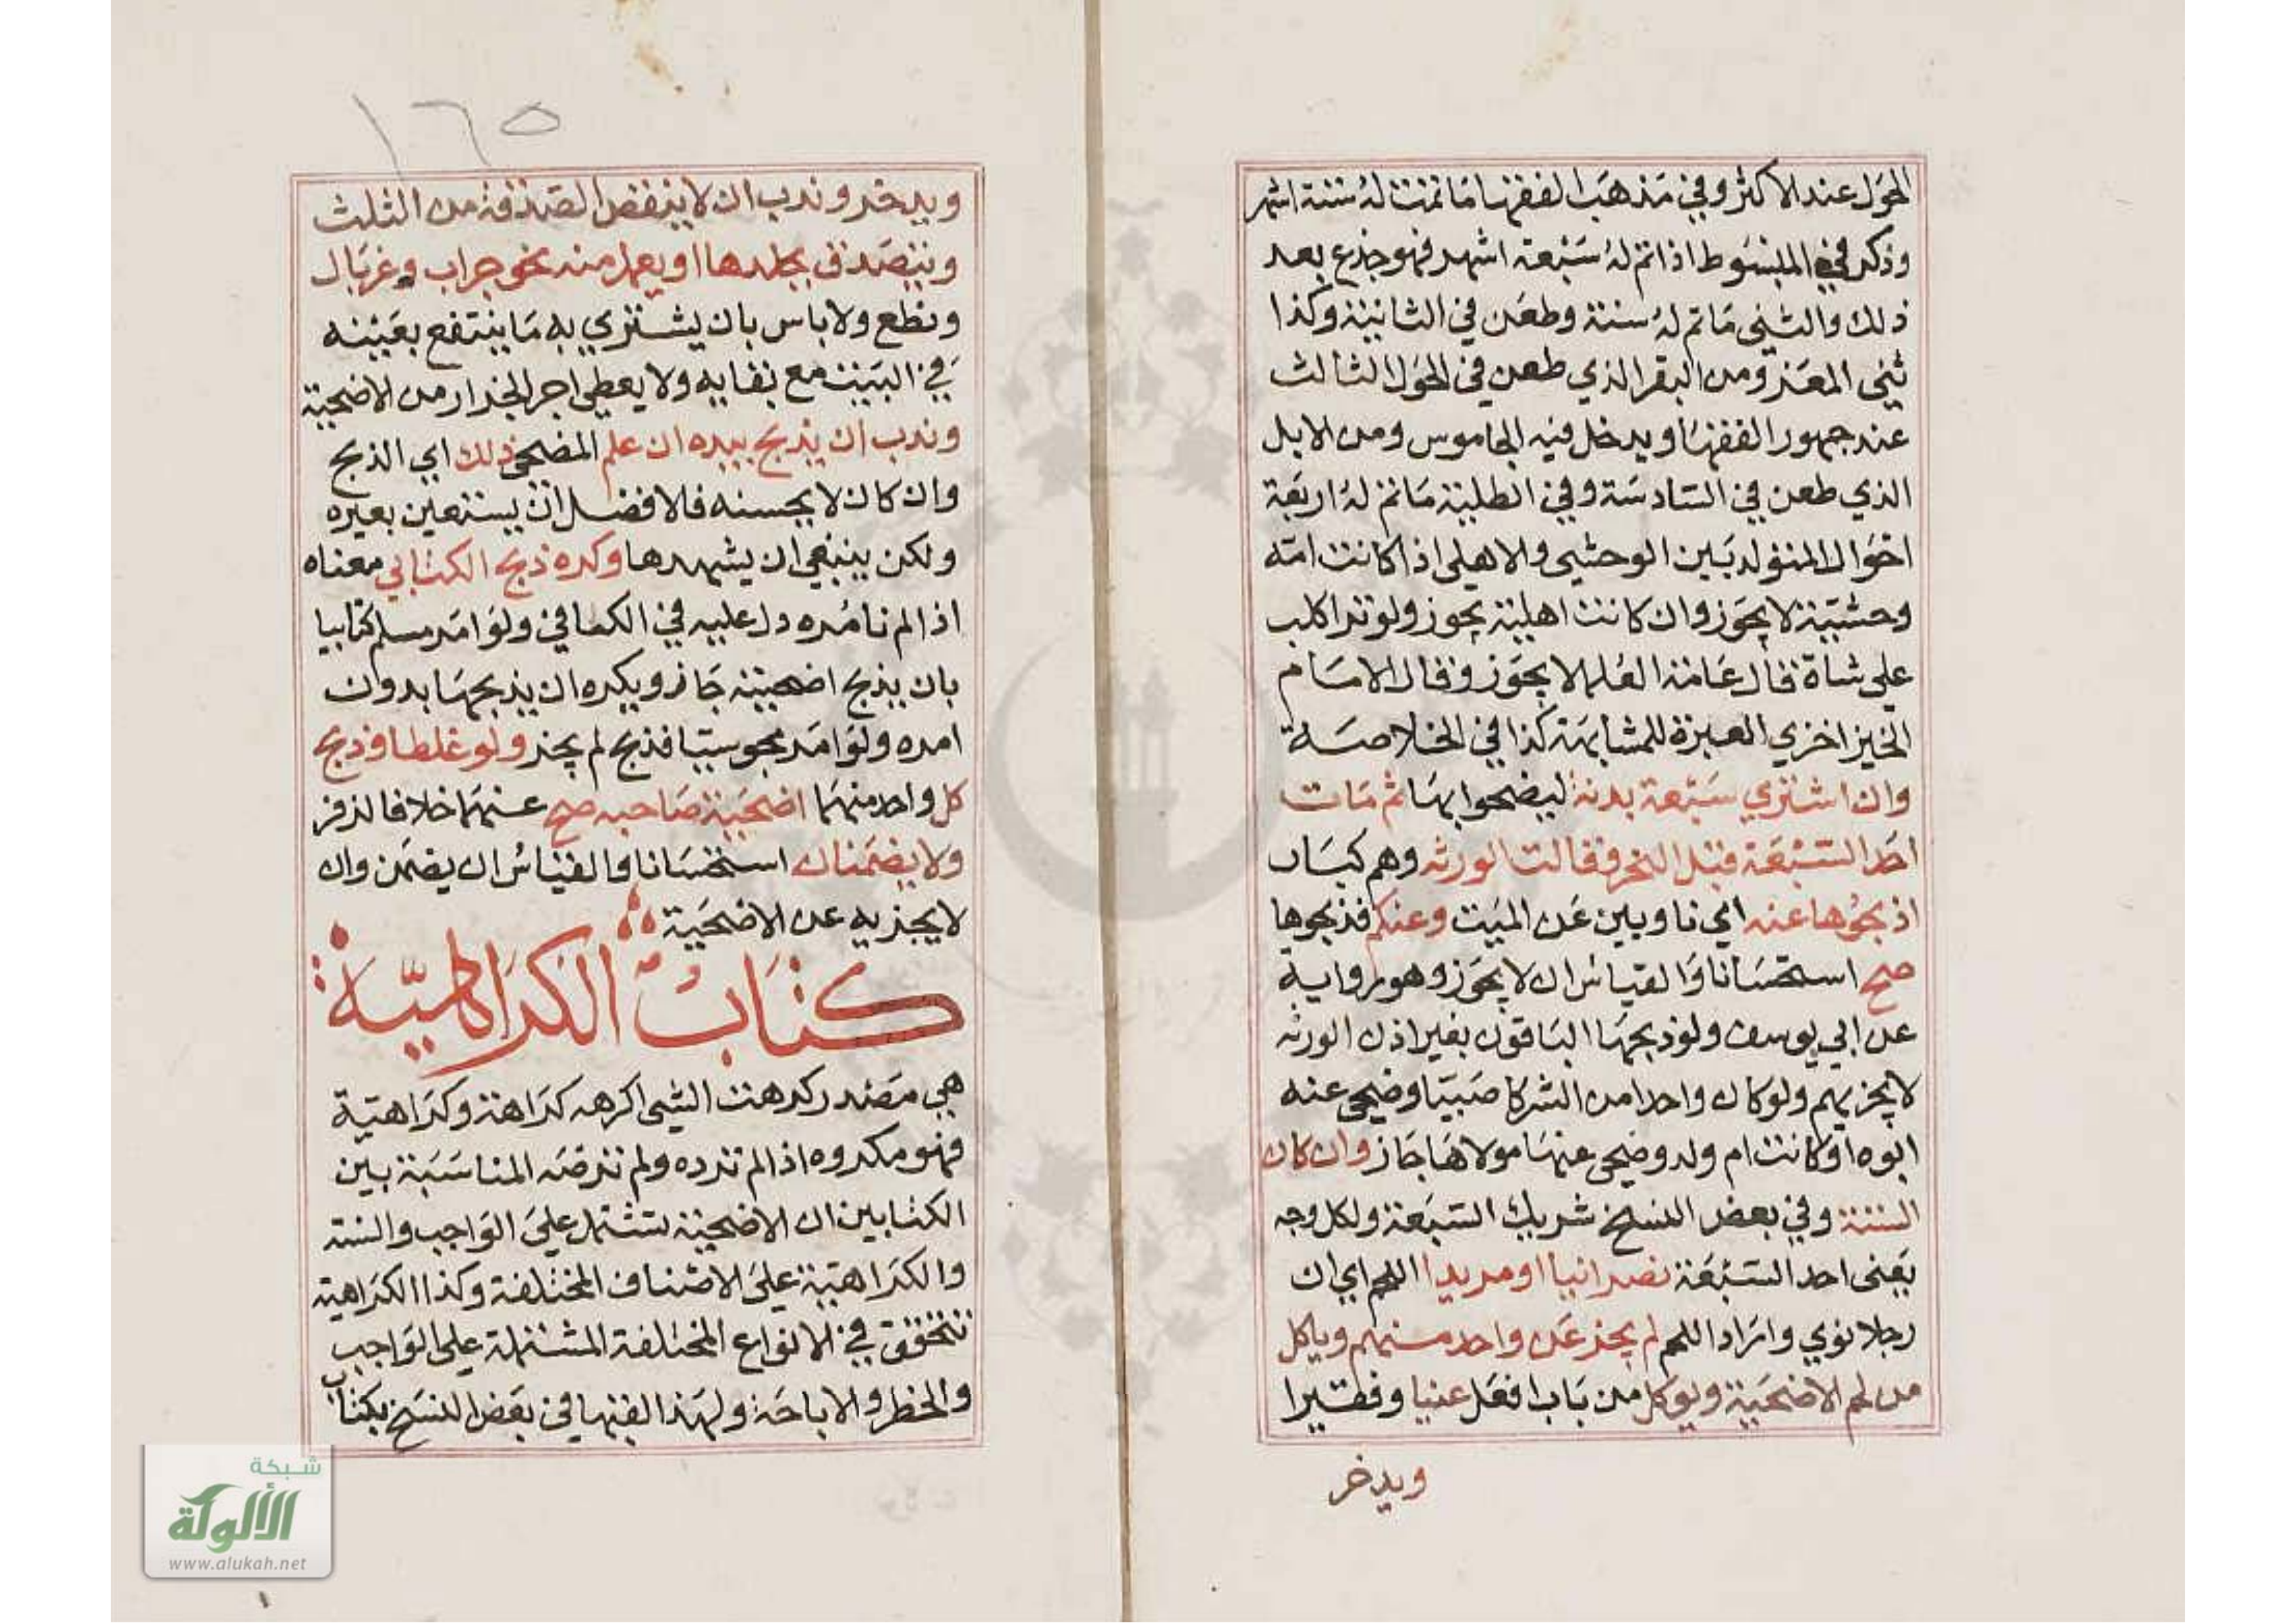 الحول عند الاكثر وفي مذهب الفقها ما تمت له ستة اشهر
وذكر في المبسوط اذا تم له سبعة اشهر فهو جذع بعد
ذلك والثني ما تم له سنة وطعن في الثانية وكذا
ثني المعز ومن البقر الذي طعن في الحول الثالث
عند جمهور الفقها ويدخل فيه الجاموس ومن الابل
الذي طعن في السادسة وفي الطلبة ما تم له اربعة
احوال المتولد بين الوحشي والاهلي اذا كانت امه
وحشية لا يجوز وان كانت اهلية يجوز ولو نزا كلب
على شاة قال عامة العلما لا يجوز وقال الامام
الخيزاخزي العبرة للمشابهة كذا في الخلاصة
وان اشتري سبعة بدنة ليضحوا بها ثم مات
احد السبعة قبل النحر وقالت الورثه وهم كبار
اذبحوها عنه اي ناوين عن الميت وعنكم فذبحوها
صح استحسانا والقياس ان لا يجوز وهو رواية
عن ابي يوسف ولو ذبحها الباقون بغير اذن الورثه
لا يجزيهم ولو كان واحدا من الشركا صبيا وضحي عنه
ابوه او كانت ام ولد وضحي عنها مولاها جاز وان كان
الستة وفي بعض النسخ شريك السبعة ولكل وجه
يعني احد السبعة نصرانيا او مريدا اللحم اي ان
رجلا نوي واراد اللحم لم يجز عن واحد منهم وياكل
من لحم الاضحية ويوكل من باب افعل غنيا وفقيرا
ويدخر
١٦٥
ويدخر وندب ان لا ينقص الصدقة من الثلث
ويتصدق بجلدها او يعمل منه نحو جراب وغربال
ونطع ولا باس بان يشتري به ما ينتفع بعينه
في البيت مع بقايه ولا يعطي اجر الجزار من الاضحية
وندب ان يذبح بيده ان علم المضحي ذلك اي الذبح
وان كان لا يحسنه فالافضل ان يستعين بغيره
ولكن ينبغي ان يشهدها وكره ذبح الكتابي معناه
اذا لم نامره دل عليه في الكافي ولو امر مسلم كتابيا
بان يذبح اضحيته جاز ويكره ان يذبحها بدون
امره ولو امر مجوسيا فذبح لم يجز ولو غلطا وذبح
كل واحد منهما اضحية صاحبه صح عنهما خلافا لزفر
ولا يضمنان استحسانا والقياس ان يضمن وان
لا يجزيه عن الاضحية
كتاب الكراهية
هي مصدر كرهت الشي اكرهه كراهة وكراهية
فهو مكروه اذا لم ترده ولم ترضه المناسبة بين
الكتابين ان الاضحية تشتمل على الواجب والسنة
والكراهية على الاصناف المختلفة وكذا الكراهية
تتحقق في الانواع المختلفة المشتملة على الواجب
والحظر والاباحة ولهذا لقبها في بعض النسخ بكتاب
شبكة
الألوكة
www.alukah.net